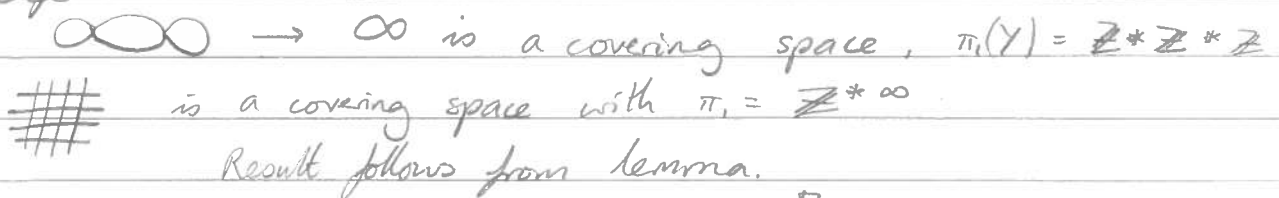 → ∞ is a covering space, π₁(Y) = ℤ * ℤ * ℤ
is a covering space with π₁ = ℤ^{* ∞}
Result follows from lemma.